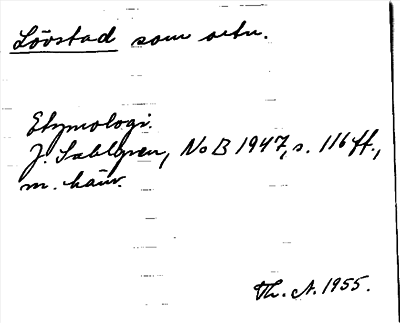 Lövstad som ortn.
Etymologi.
J. Sahlgren, NoB 1947, s. 116 ff.,
m. hänv.
Th. A. 1955.